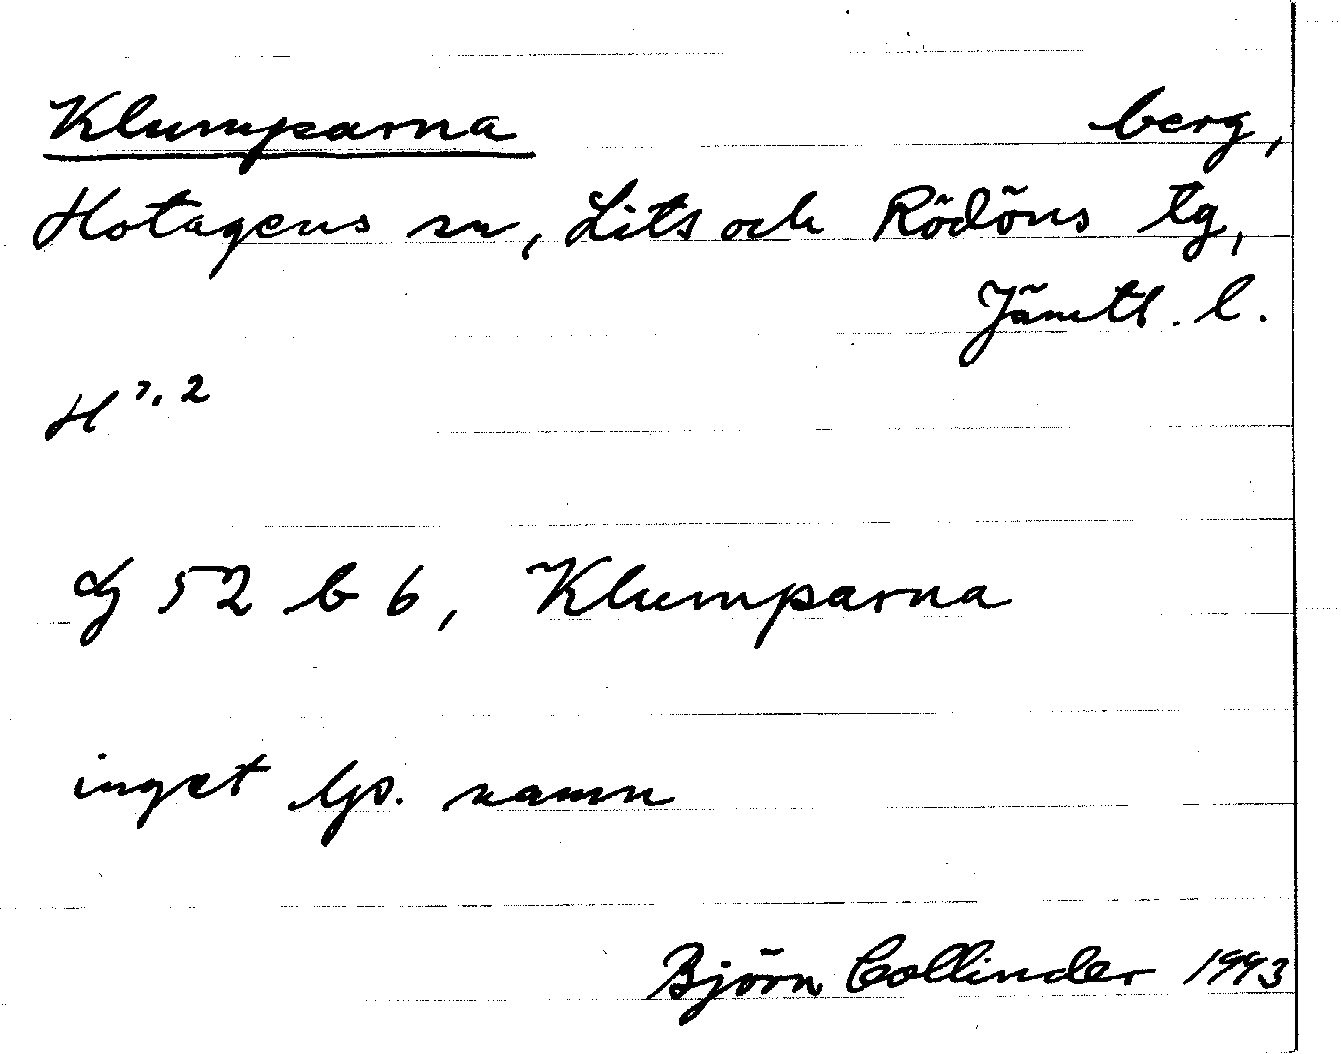 Klumparna berg,
Hotagens sn, Lits och Rödöns tg,
Jämtl. l.
H 7. 2
Lg 52 b 6, Klumparna
inget lp. namn
Björn Collinder 1943